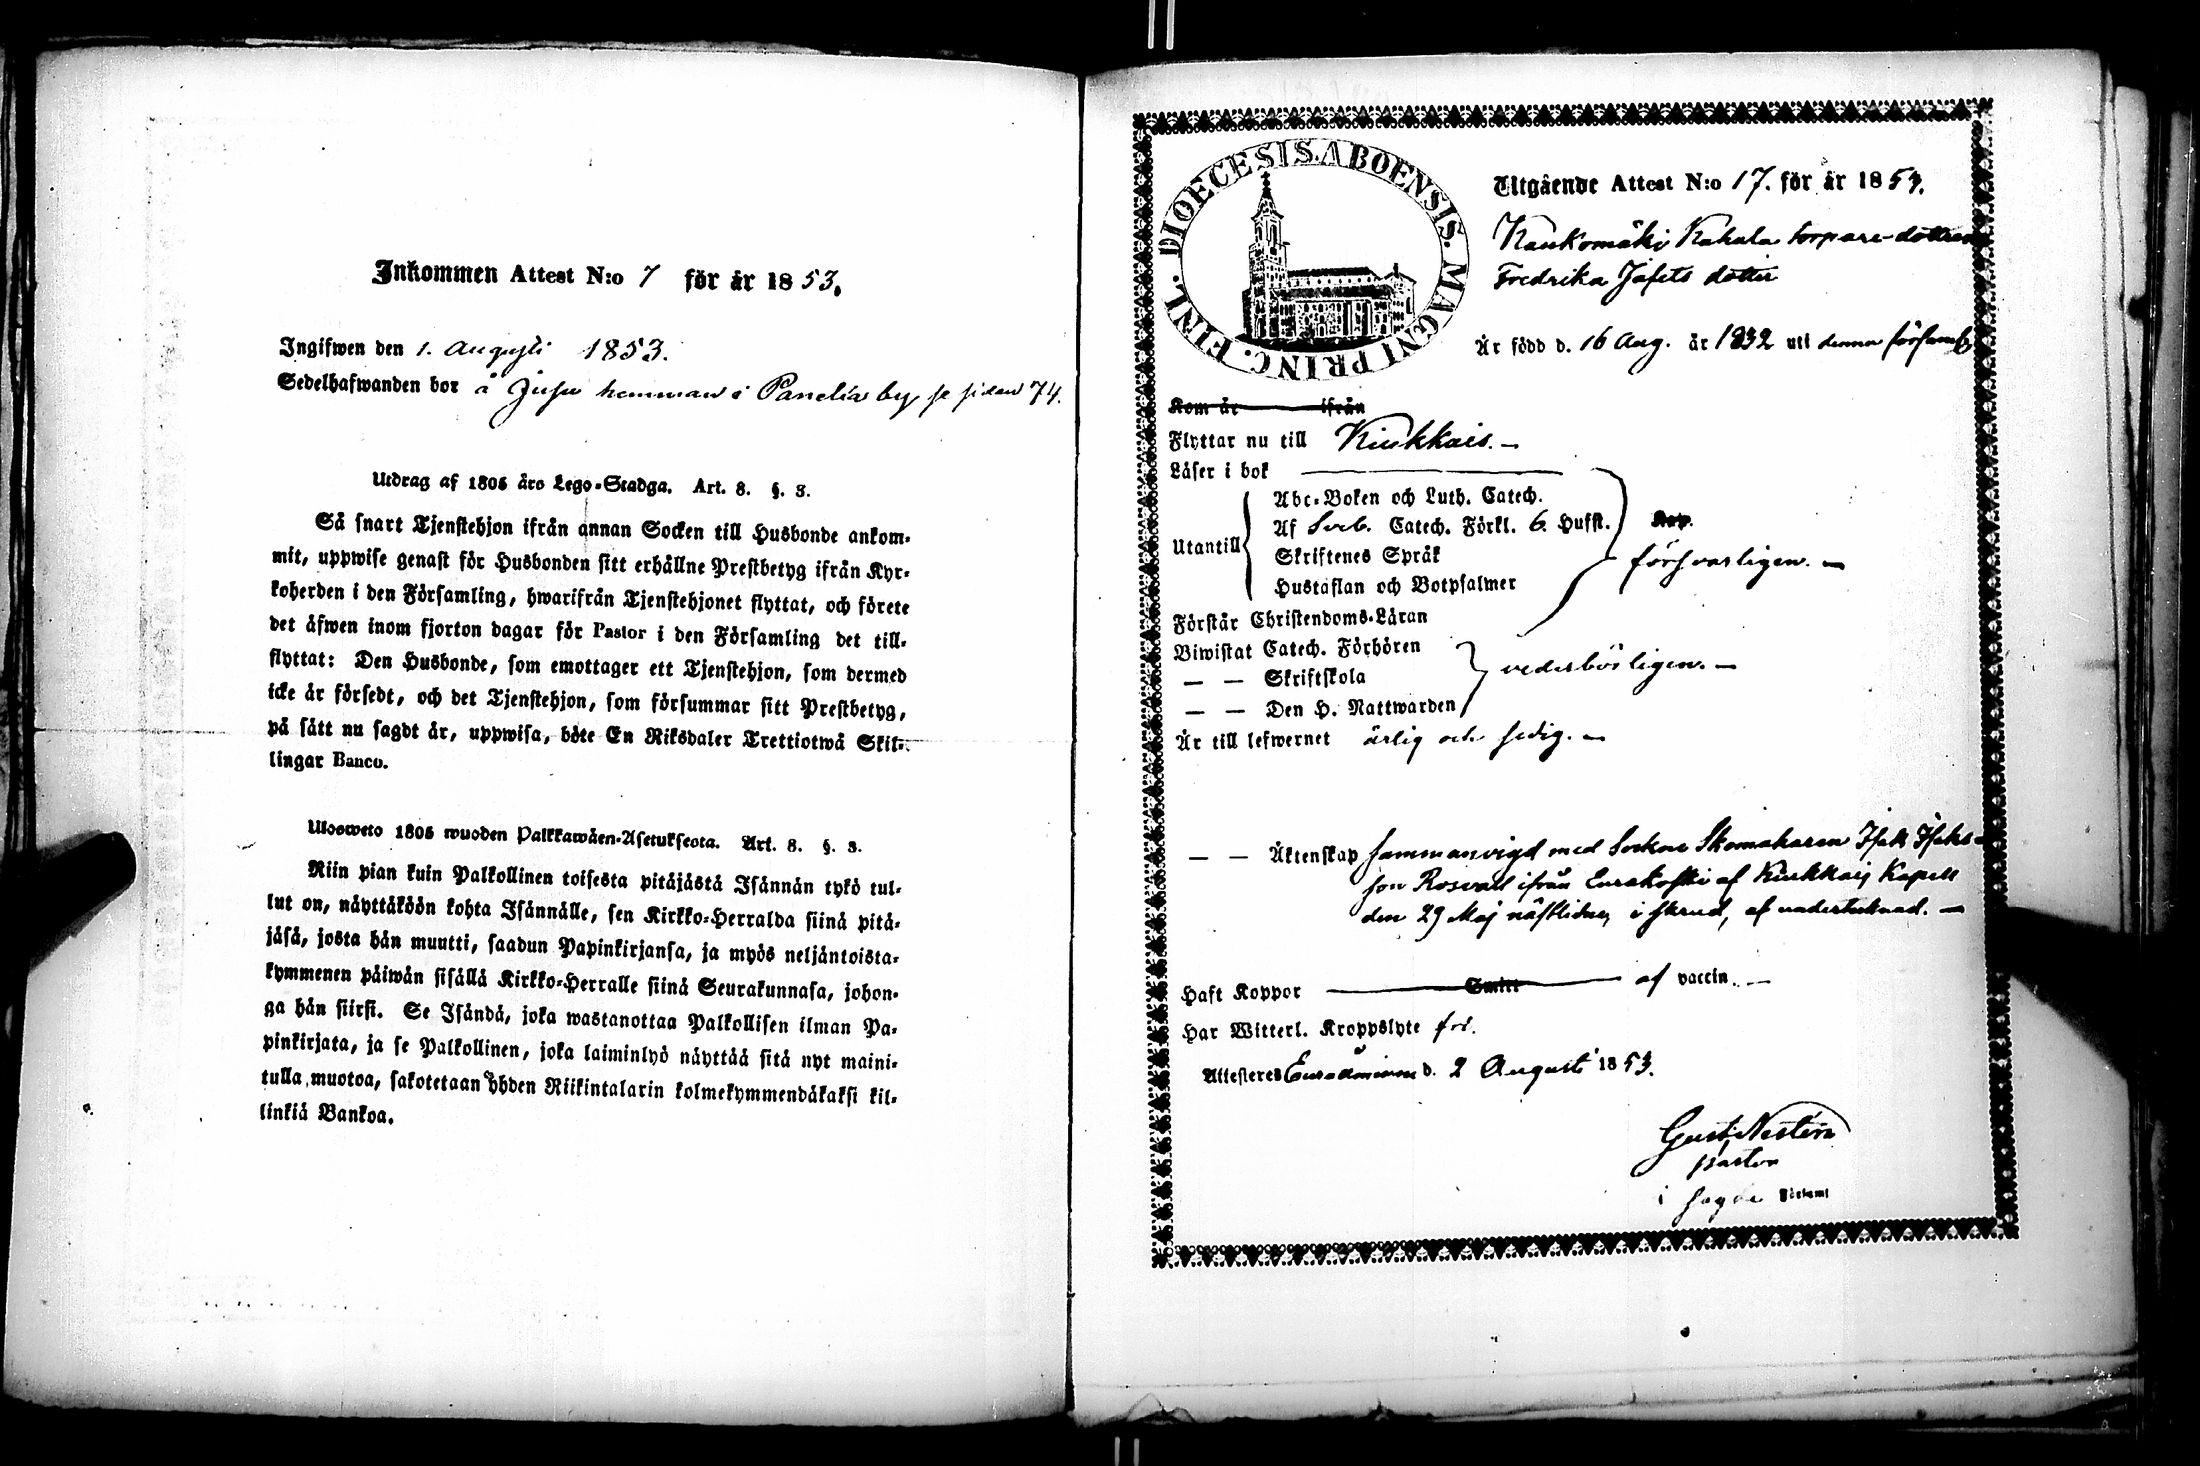 Inkommen Attest N:o 7 för år 1853.
Ingifwen den 1. Augusti 1853.
Sedelhafwanden bor å Jusu hemman i Panelia by se sidan 74.
Utdrag af 1805 års Lego-Stadga. Art. 8. §. 3.
Så snart Tjenstehjon ifrån annan Socken till Husbonde ankom-
mit, uppwise genast för Husbonden sitt erhållne Prestbetyg ifrån Kyr-
koherden i den Församling, hwarifrån Tjenstehjonet flyttat, och förete
det äfwen inom fjorton dagar för Pastor i den Församling det till-
flyttat: Den Husbonde, som emottager ett Tjenstehjon, som dermed
icke är försedt, och det Tjenstehjon, som försummar sitt Prestbetyg,
på sätt nu sagdt är, uppwisa, böte En Riksdaler Trettiotwå Skil-
lingar Banco.
Ulosweto 1805 wuoden Palkkawäen-Asetuksesta. Art. 8. §. 3.
Niin pian kuin Palkollinen toisesta pitäjästä Isännän tykö tul-
lut on, näyttäköön kohta Isännälle, sen Kirkko-Herralda siinä pitä-
jäsä, josta hän muutti, saadun Papinkirjansa, ja myös neljäntoista-
kymmenen päiwän sisällä Kirkko-Herralle siinä Seurakunnasa, johon-
ga hän siirsi. Se Isändä, joka wastanottaa Palkollisen ilman Pa-
pinkirjata, ja se Palkollinen, joka laiminlyö näyttää sitä nyt maini-
tulla muotoa, sakotetaan yhden Riikintalarin kolmekymmendäkaksi kil-
linkiä Bankoa.
FINL. DIOECESIS. ABOENSIS. MAGNI PRINC.
Utgående Attest N:o 17. för år 1853.
Kaukomäki Kahala torpare-dottren
Fredrika Jafets dotter
Är född d. 16 Aug. år 1832 uti denna församl.
Kom år ifrån
Flyttar nu till Kiukkais. —
Läser i bok
Utantill
Abc-Boken och Luth. Catech.
Af Sveb. Catech. Förkl. 6. Hufst.
Skriftenes Språk
Hustaflan och Botpsalmer
försvarligen. —
Förstår Christendoms-Läran
Biwistat Catech. Förhören
— — Skriftskola
— — Den H. Nattwarden
vederbörligen. —
Är till lefwernet ärlig och sedig. —
— — Äktenskap sammanvigd med Socken Skomakaren Isak Isaks-
son Rosvall ifrån Eurakoski af Kiukkais Kapell
den 29 Maj nästlidne, i skrud, af undertecknad. —
Haft Koppor Smitt af vaccin. —
Har Witterl. Kroppslyte fri.
Attesteres Euraåminne d. 2 Augusti 1853.
Gust. Nestén
pastor
i sagde Församl